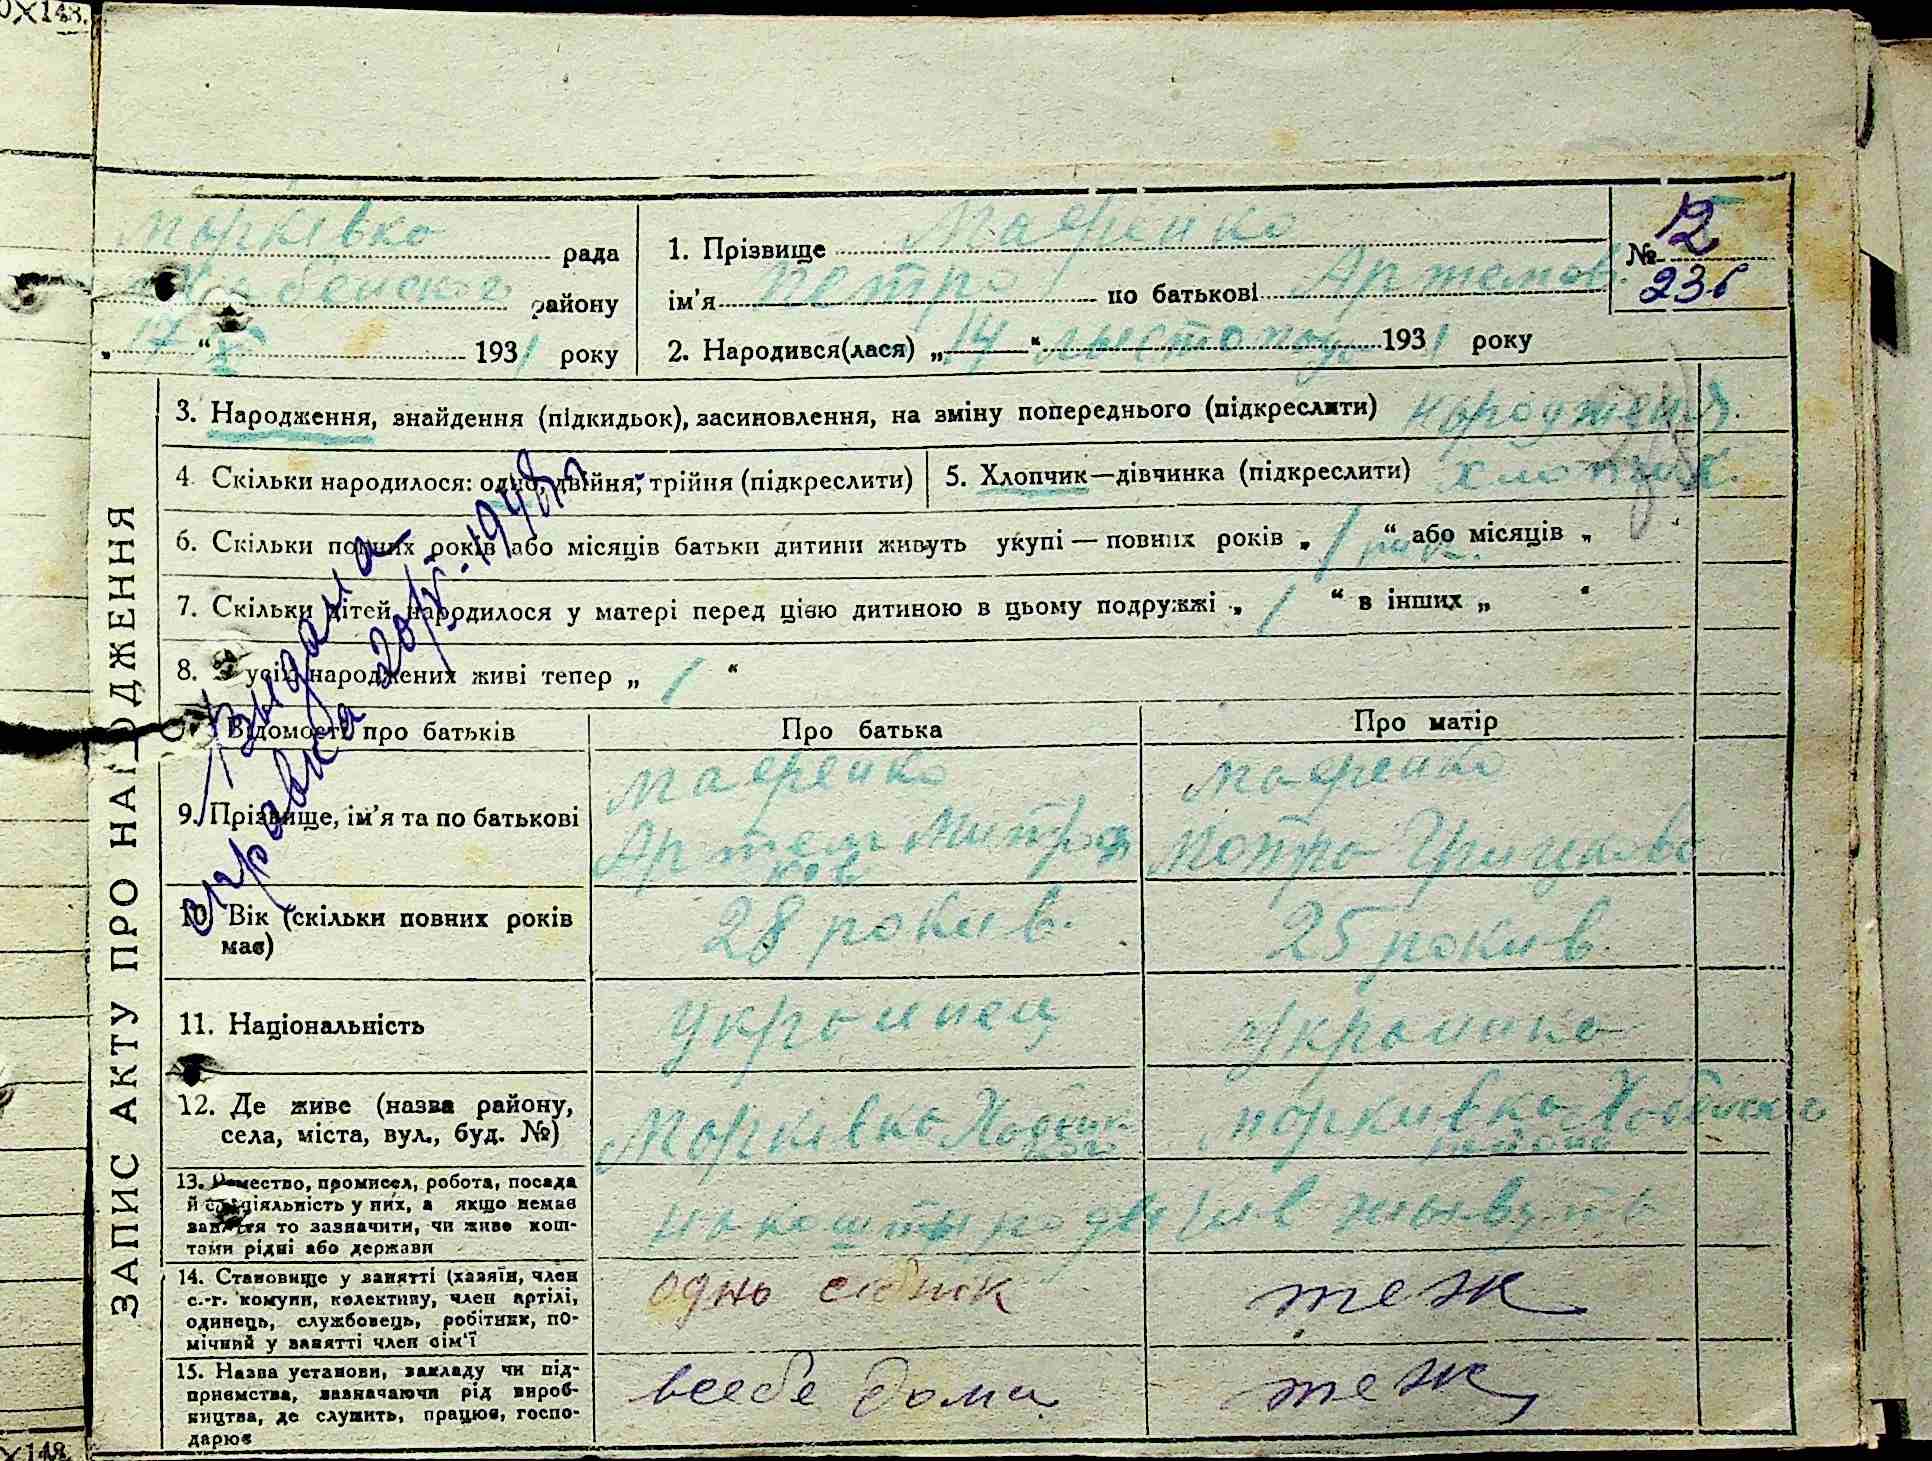 ЗАПИС АКТУ ПРО НАРОДЖЕННЯ
Морківко рада
району
„ 17 “ X 1931 року
1. Прізвище Маєренко
ім’я Петро по батькові Артемов.
2. Народився(лася) „ 14 “ лыстопод 1931 року
№ 12
236
3. Народження, знайдення (підкидьок), засиновлення, на зміну попереднього (підкреслити) народження.
4. Скільки народилося: одно, двійня, трійня (підкреслити)
5. Хлопчик—дівчинка (підкреслити) хлопчик.
6. Скільки повних років або місяців батьки дитини живуть укупі — повних років „ 1 рок. “ або місяців „
7. Скільки дітей народилося у матері перед цією дитиною в цьому подружжі „ 1 “ в інших „ “
8. З усіх народжених живі тепер „ 1 “
Видана
справка 20/V-1948р
Відомості про батьків
Про батька
Про матір
9. Прізвище, ім’я та по батькові
Маєренко
Артем Митро
ков
Маєренко
Мотро Грицково
10. Вік (скільки повних років
має)
28 рокив.
25 рокив.
11. Національність
Украинец
Украинко
12. Де живе (назва району,
села, міста, вул., буд. №)
Морківко
Моркивко
району
13. Ремество, промисел, робота, посада
й спеціяльність у них, а якщо немає
заняття то зазначити, чи живе кош-
тами рідні або держави
на кошты родычів жывуть
14. Становище у занятті (хазяїн, член
с.-г. комуни, колективу, член артілі,
одинець, службовець, робітник, по-
мічний у занятті член сім’ї
одноосібник
теж
15. Назва установи, закладу чи під-
приємства, зазначаючи рід вироб-
ництва, де служить, працює, госпо-
дарює
всебе дома
теж